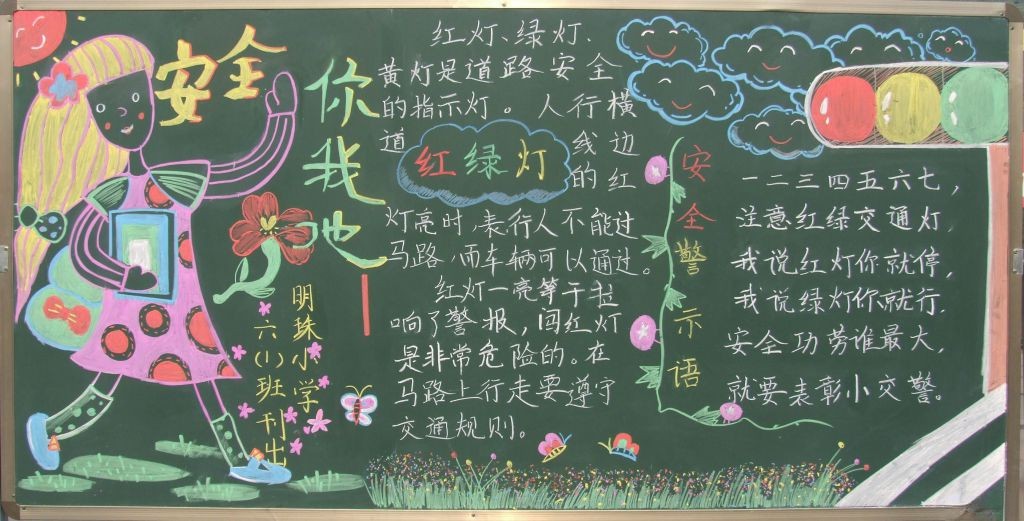 安全
你我他
明珠小学
六(1)班刊出
红灯、绿灯、
黄灯是道路安全
的指示灯。人行横
道
线边
红绿灯
的红
灯亮时,表行人不能过
马路,而车辆可以通过。
红灯一亮等于拉
响了警报,闯红灯
是非常危险的。在
马路上行走要遵守
交通规则。
安全警示语
一二三四五六七,
注意红绿交通灯,
我说红灯你就停,
我说绿灯你就行.
安全功劳谁最大,
就要表彰小交警。